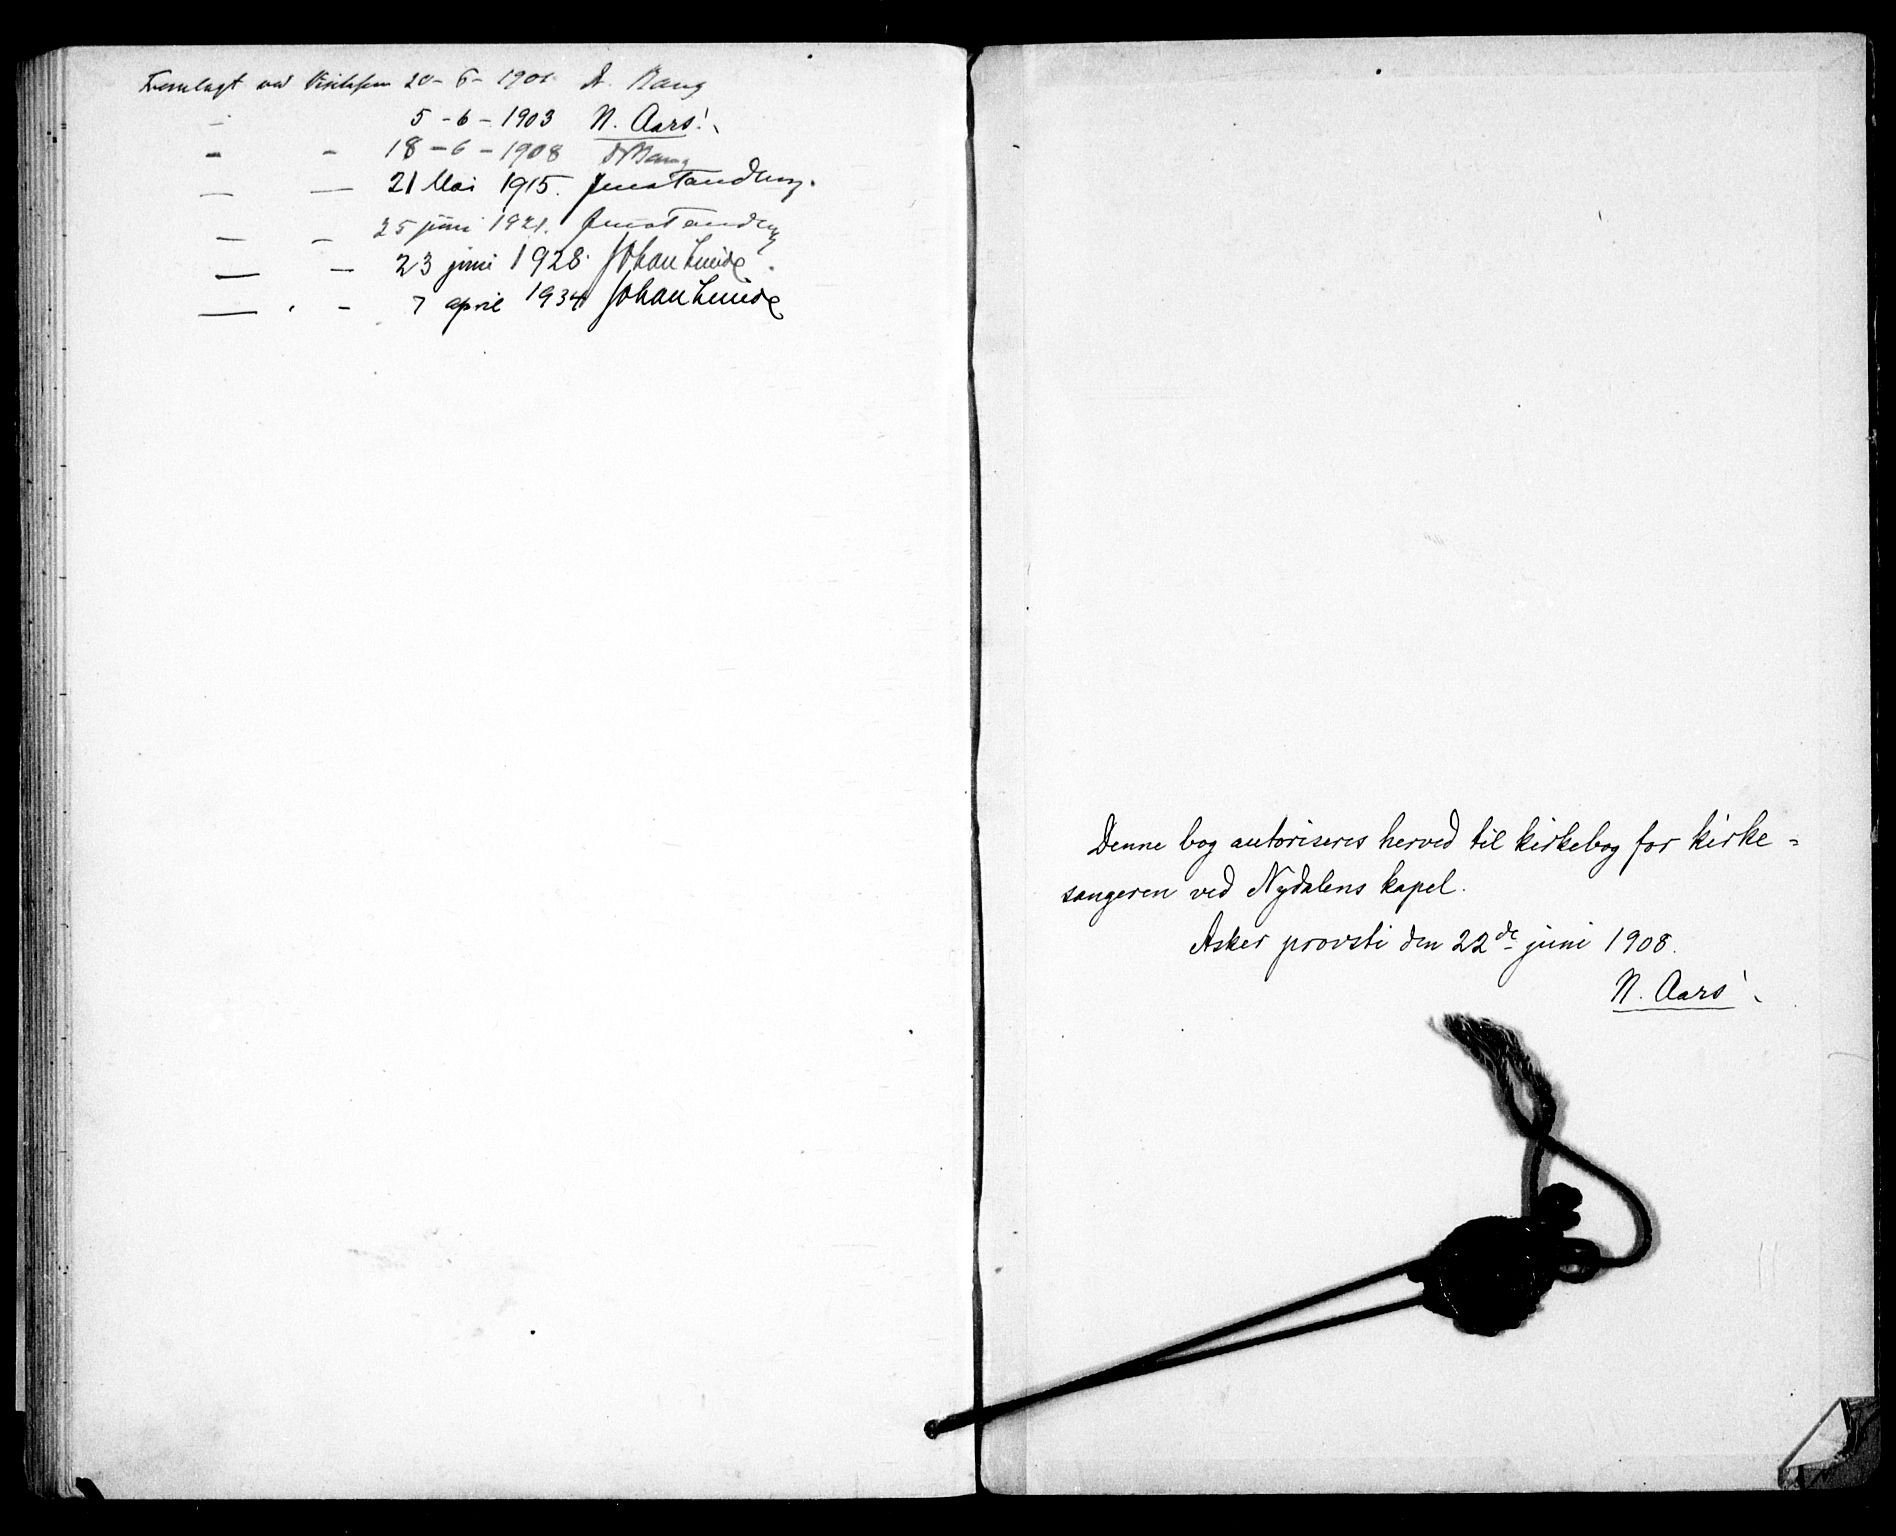 Fremlagt ved Visitasen 20-6-1901 A. Bang
5-6-1903 N. Aars.
- - 18-6-1908 A Bang
— — 21 Mai 1915. Jens Tandberg.
— — 25 juni 1921. Jens Tandberg
— — 23 juni 1928. Johan Lunde.
— - 7 april 1934 Johan Lunde
Denne bog autoriseres herved til kirkebog for kirke=
sangeren ved Nydalens kapel.
Asker provsti den 22de juni 1908.
N. Aars